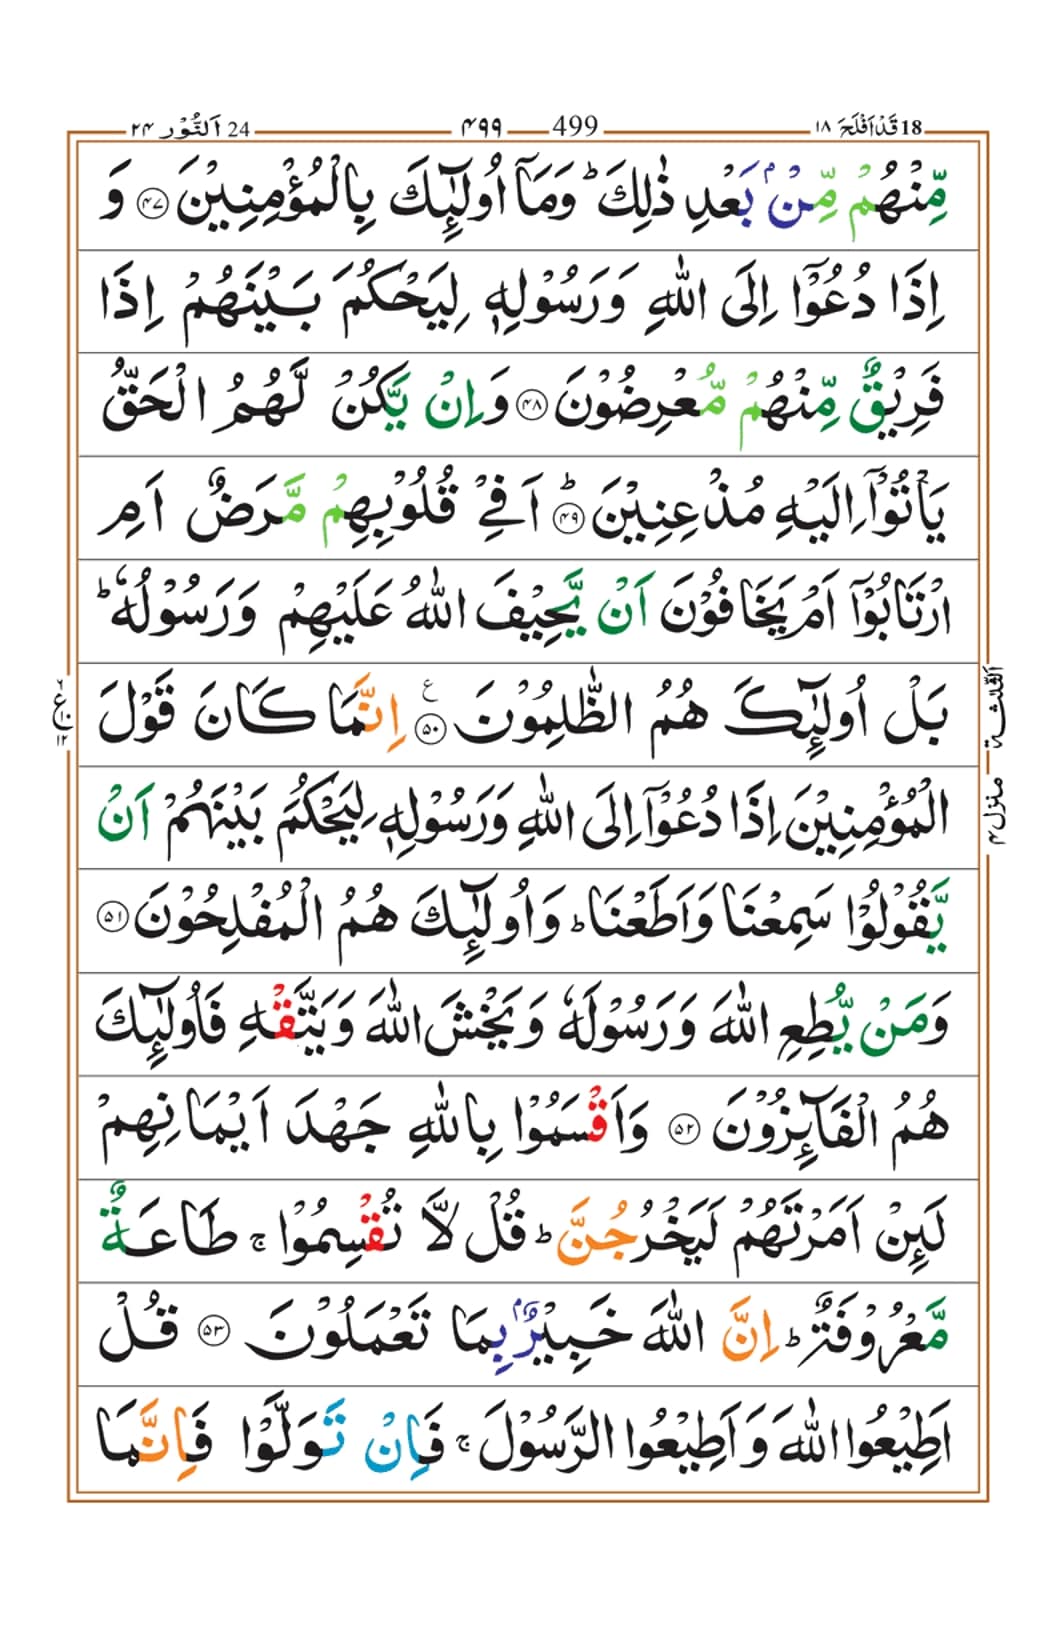 18 قَدْ اَفْلَحَ ١٨
499 ۴۹۹
24 اَلنُّوْر ٢۴
مِّنْهُمْ مِّنْۢ بَعْدِ ذٰلِكَ ؕ وَمَاۤ اُولٰٓئِكَ بِالْمُؤْمِنِيْنَ ﴿۴۷﴾ وَ
اِذَا دُعُوْۤا اِلَى اللّٰهِ وَرَسُوْلِهٖ لِيَحْكُمَ بَيْنَهُمْ اِذَا
فَرِيْقٌ مِّنْهُمْ مُّعْرِضُوْنَ ﴿۴۸﴾ وَاِنْ يَّكُنْ لَّهُمُ الْحَقُّ
يَاْتُوْۤا اِلَيْهِ مُذْعِنِيْنَ ﴿۴۹﴾ ؕ اَفِيْ قُلُوْبِهِمْ مَّرَضٌ اَمِ
ارْتَابُوْۤا اَمْ يَخَافُوْنَ اَنْ يَّحِيْفَ اللّٰهُ عَلَيْهِمْ وَرَسُوْلُهٗ ؕ
بَلْ اُولٰٓئِكَ هُمُ الظّٰلِمُوْنَ ﴿۵۰﴾ ع اِنَّمَا كَانَ قَوْلَ
الْمُؤْمِنِيْنَ اِذَا دُعُوْۤا اِلَى اللّٰهِ وَرَسُوْلِهٖ لِيَحْكُمَ بَيْنَهُمْ اَنْ
يَّقُوْلُوْا سَمِعْنَا وَاَطَعْنَا ؕ وَاُولٰٓئِكَ هُمُ الْمُفْلِحُوْنَ ﴿۵۱﴾
وَمَنْ يُّطِعِ اللّٰهَ وَرَسُوْلَهٗ وَيَخْشَ اللّٰهَ وَيَتَّقْهِ فَاُولٰٓئِكَ
هُمُ الْفَآئِزُوْنَ ﴿۵۲﴾ وَاَقْسَمُوْا بِاللّٰهِ جَهْدَ اَيْمَانِهِمْ
لَئِنْ اَمَرْتَهُمْ لَيَخْرُجُنَّ ؕ قُلْ لَّا تُقْسِمُوْا ۚ طَاعَةٌ
مَّعْرُوْفَةٌ ؕ اِنَّ اللّٰهَ خَبِيْرٌۢ بِمَا تَعْمَلُوْنَ ﴿۵۳﴾ قُلْ
اَطِيْعُوا اللّٰهَ وَاَطِيْعُوا الرَّسُوْلَ ۚ فَاِنْ تَوَلَّوْا فَاِنَّمَا
الثلثة
منزل ۴
ع
١٢